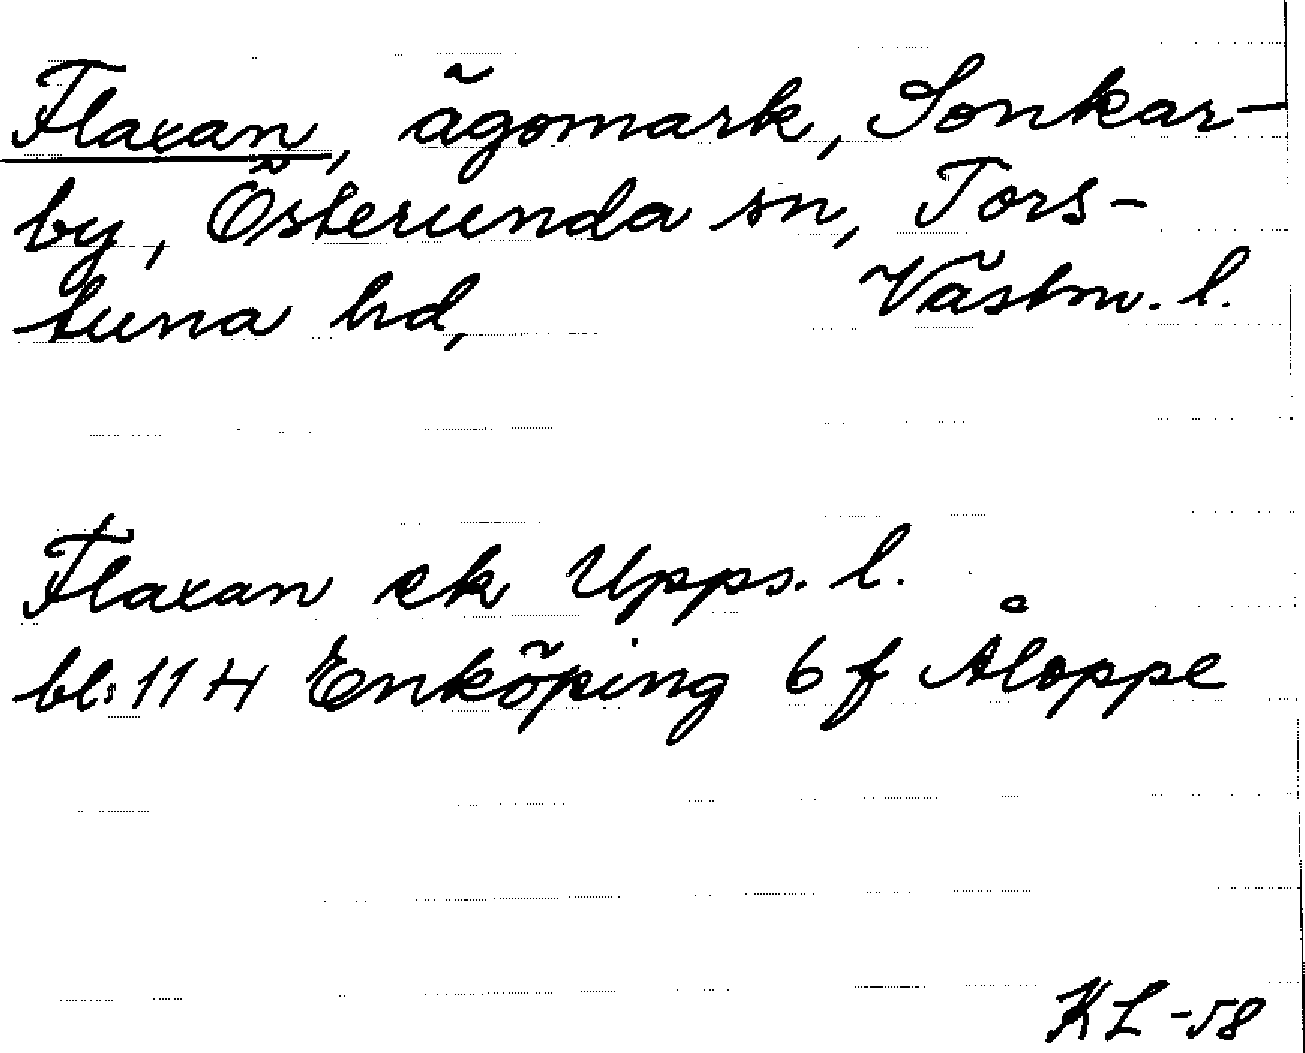 Flaxan, ägomark, Sonkar-
by, Österunda sn, Tors-
tuna hd, Västm. l.
Flaxan ek Upps. l.
bl: 11 H Enköping 6 f Åloppe
KL -58